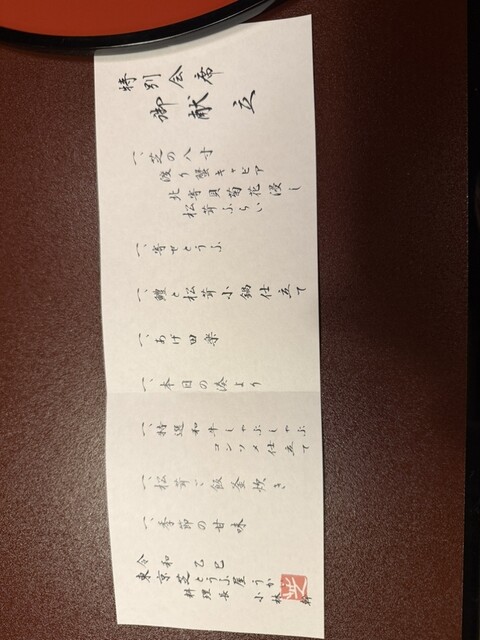 特別会席
御献立
一、芝の八寸
渡り蟹キャビア
北寄貝菊花浸し
松茸ふらい
一、寄せとうふ
一、鱧と松茸小鍋仕立て
一、あげ田楽
一、本日の湊より
一、特選和牛しゃぶしゃぶ
コンソメ仕立て
一、松茸ご飯釜炊き
一、季節の甘味
令和乙巳
東京芝とうふ屋うかい
料理長 小林